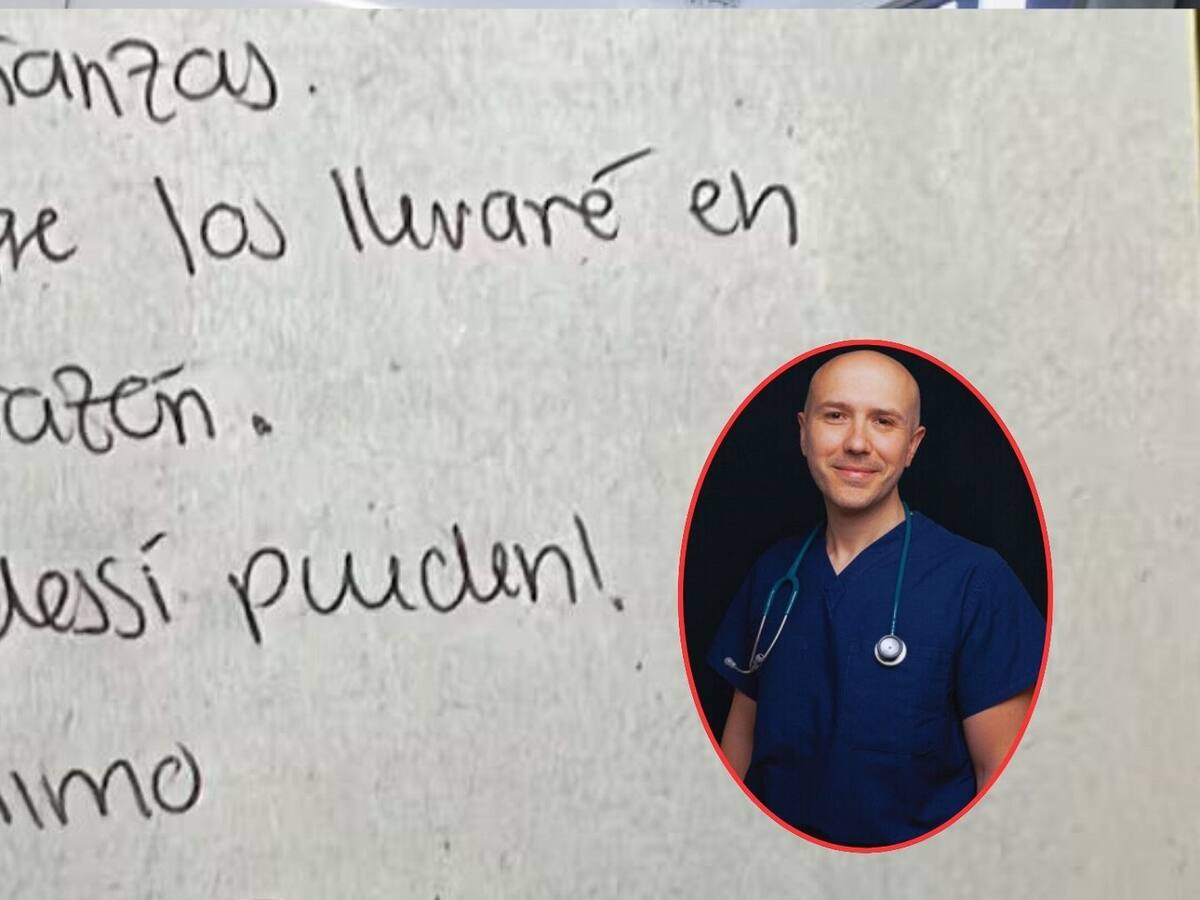 ianzas.
ge los llevaré en
razón.
dessí pueden!
nimo